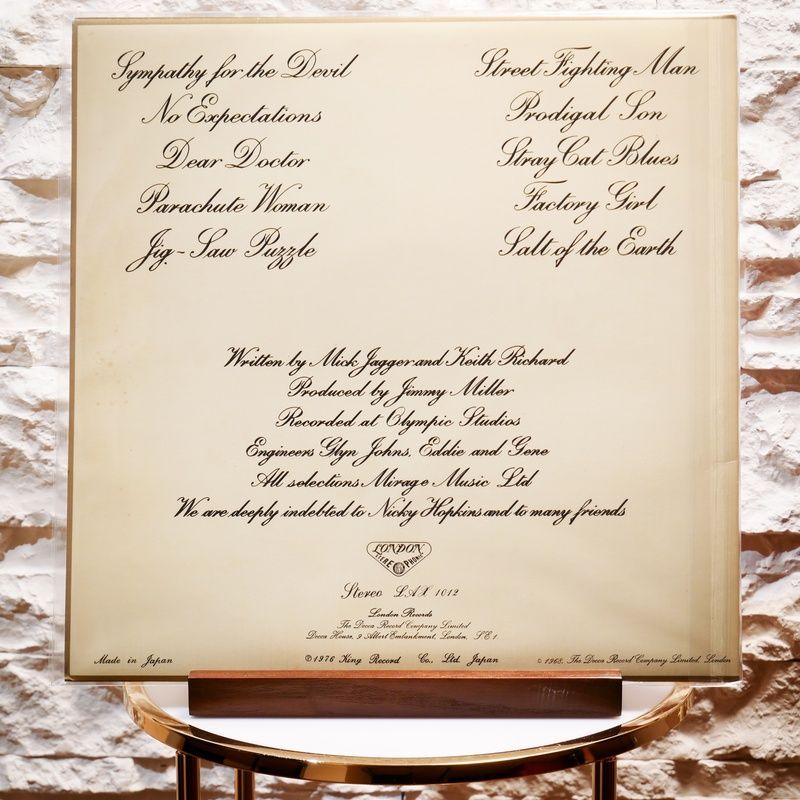 Sympathy for the Devil
No Expectations
Dear Doctor
Parachute Woman
Jig-Saw Puzzle
Street Fighting Man
Prodigal Son
Stray Cat Blues
Factory Girl
Salt of the Earth
Written by Mick Jagger and Keith Richard
Produced by Jimmy Miller
Recorded at Olympic Studios
Engineers Glyn Johns, Eddie and Gene
All selections, Mirage Music Ltd
We are deeply indebted to Nicky Hopkins and to many friends
LONDON
STEREOPHONIC
Stereo LAX 1012
London Records
The Decca Record Company Limited
Decca House, 9 Albert Embankment, London, S E 1.
Made in Japan
℗ 1976 King Record Co., Ltd. Japan
© 1968, The Decca Record Company Limited, London